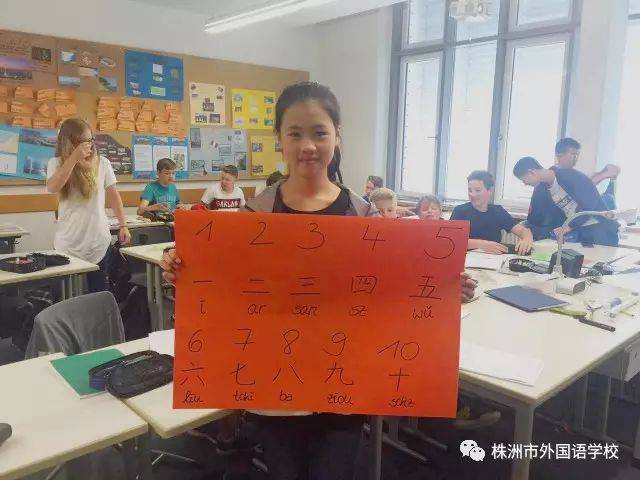 1 2 3 4 5
一 二 三 四 五
i ar san sz wǔ
6 7 8 9 10
六 七 八 九 十
liu tchi ba ziou schz
株洲市外国语学校